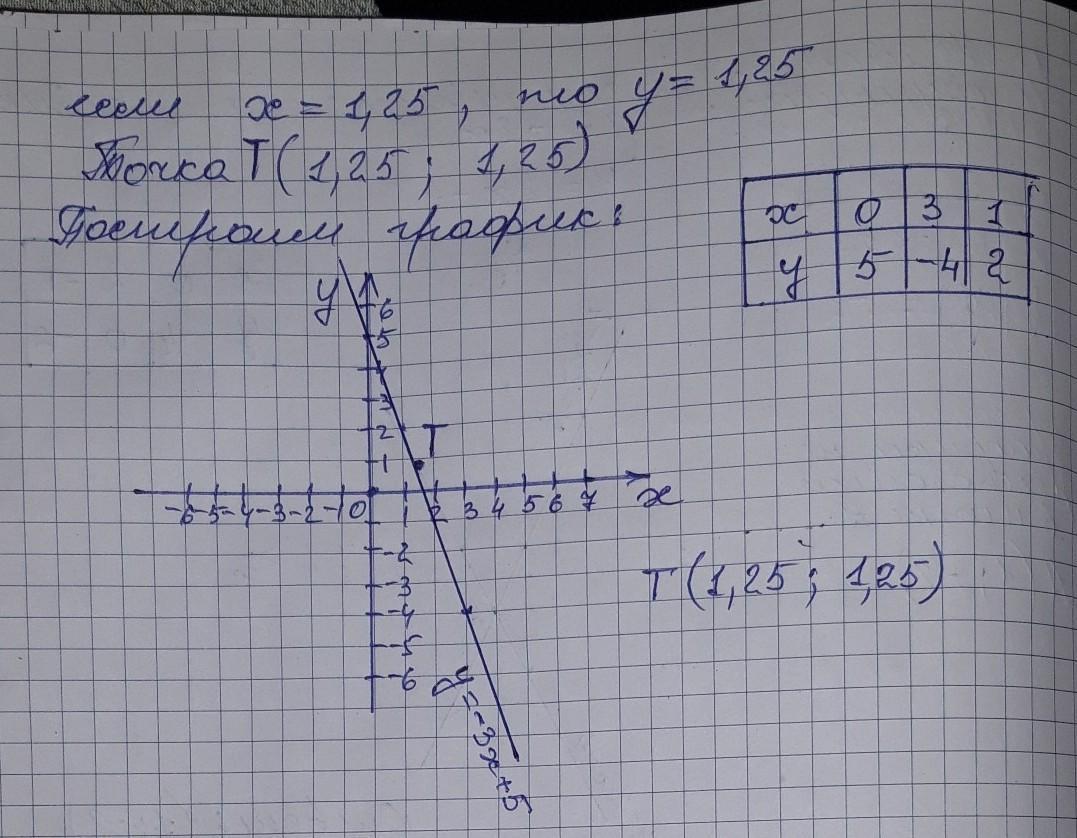 если x = 1,25 , то y = 1,25
Точка T(1,25 ; 1,25)
Построим график:
x 0 3 1
y 5 -4 2
y
6
5
3
2 T
1
-6 -5 -4 -3 -2 -1 0 1 2 3 4 5 6 7 x
-2
-3
-4
-5
-6
T(1,25 ; 1,25)
y = -3x+5